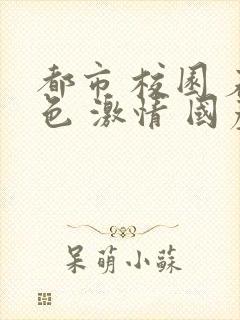 都市 校园
色 激情 国
呆萌小蘇